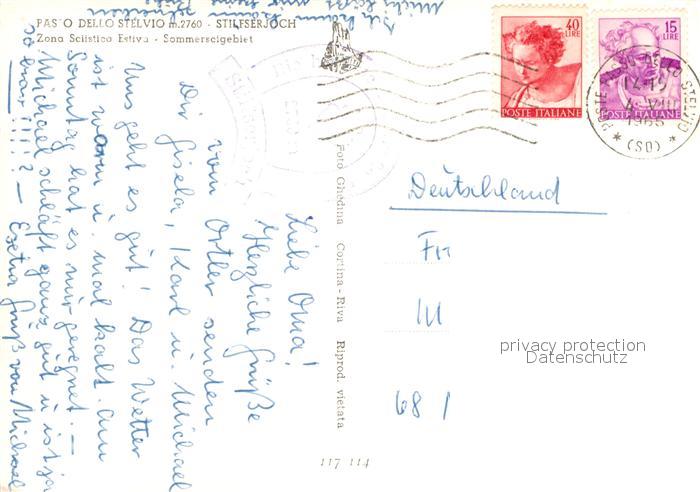 PASSO DELLO STELVIO m.2760 - STILFSERJOCH
Zona Sciistica Estiva - Sommerscigebiet
Liebe Oma!
Herzliche Grüße
vom Ortler senden
Dir Gisela, Karl u. Michael
Uns geht es gut! Das Wetter
ist warm u. mal kalt. Am
Sonntag hat es mir geregnet. —
Michael schläft ganz gut u. ist ja
so brav!!!!? — Extra Gruß von Michael
Foto Ghedina Cortina-Riva Riprod. vietata
117 114
40
LIRE
POSTE ITALIANE
15
LIRE
POSTE ITALIANE
POSTE STELVIO
1965
(SO)
Deutschland
Fr
68
privacy protection
Datenschutz